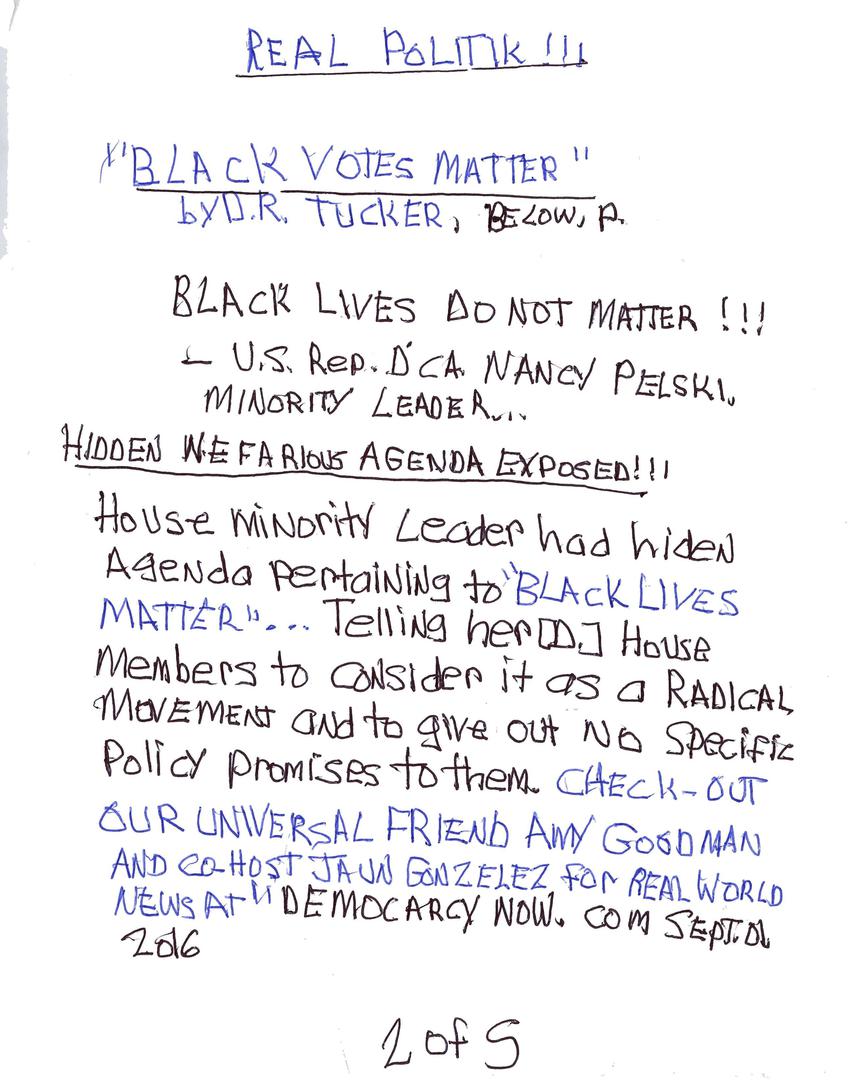 REAL POLITIK !!!
"BLACK VOTES MATTER"
by D.R. TUCKER, BELOW, P.
BLACK LIVES DO NOT MATTER !!!
– U.S. Rep. D'CA. NANCY PELSKI,
MINORITY LEADER...
HIDDEN NEFARIOUS AGENDA EXPOSED!!!
House minority Leader had hiden
Agenda pertaining to "BLACK LIVES
MATTER"... Telling her [D.] House
members to consider it as a RADICAL
MOVEMENT and to give out No specific
Policy promises to them. CHECK-OUT
OUR UNIVERSAL FRIEND AMY GOODMAN
AND CO-HOST JAUN GONZELEZ for REAL WORLD
NEWS AT "DEMOCARCY NOW. COM SEPT.01,
2016
2 of 5